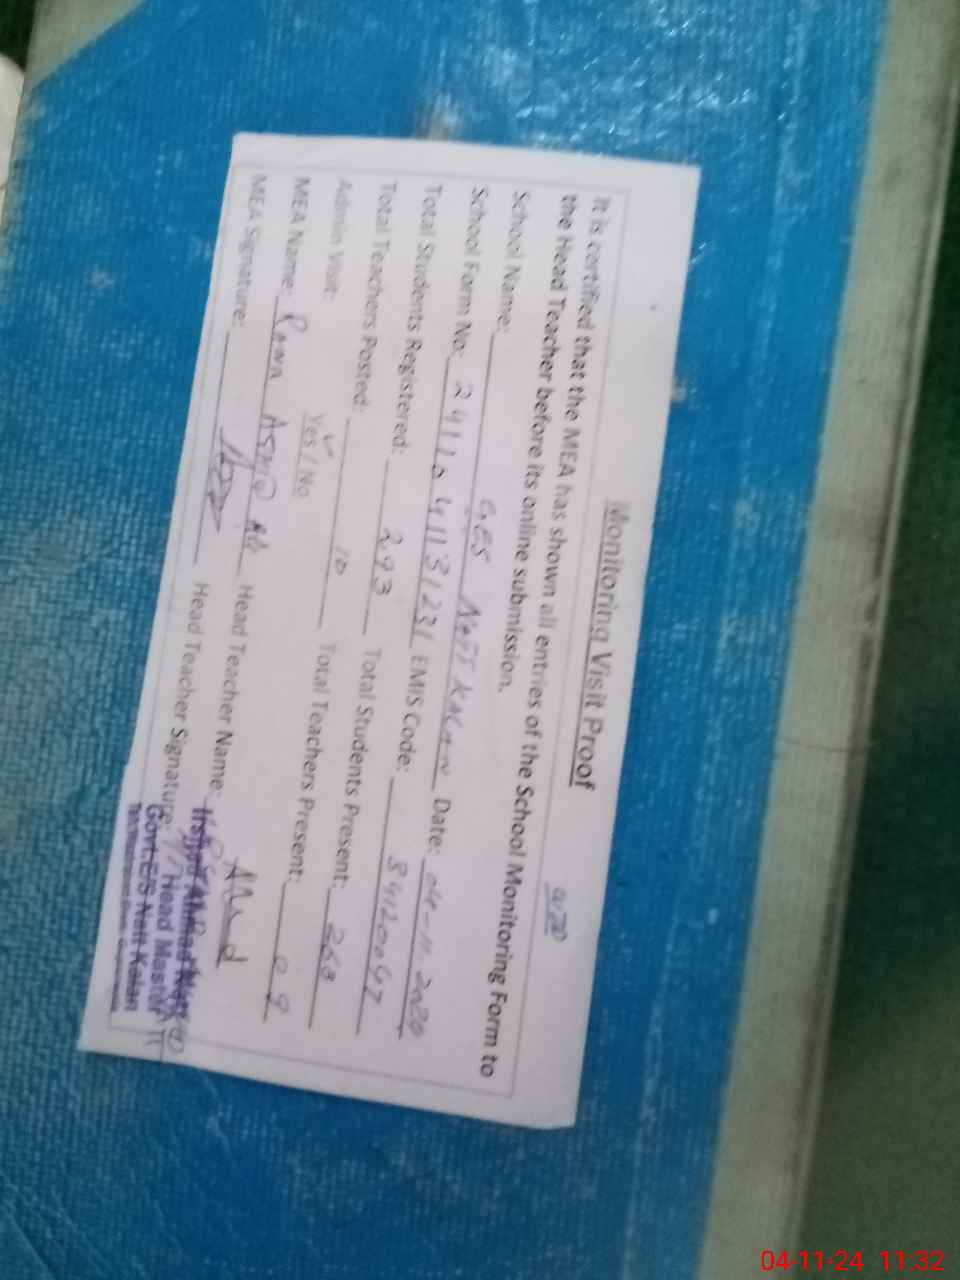 Monitoring Visit Proof
It is certified that the MEA has shown all entries of the School Monitoring Form to
the Head Teacher before its online submission.
School Name: GES Natt Kalan Date: 04-11-2024
School Form No: 2411041131231 EMIS Code:
Total Students Registered: 293 Total Students Present:
Total Teachers Posted: 10 Total Teachers Present: 09
Admin Visit: Yes / No
MEA Name: RANA ASHIQ Head Teacher Name:
MEA Signature: Head Teacher Signature:
Head Master
Govt. E/S Natt Kalan
04-11-24 11:32